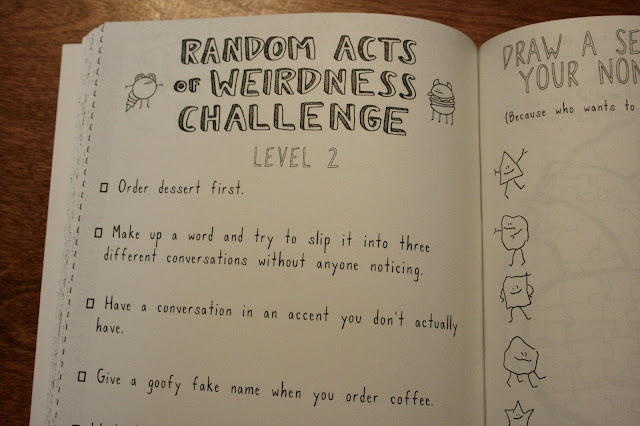 RANDOM ACTS
OF WEIRDNESS
CHALLENGE
LEVEL 2
Order dessert first.
Make up a word and try to slip it into three
different conversations without anyone noticing.
Have a conversation in an accent you don't actually
have.
Give a goofy fake name when you order coffee.
DRAW A
YOUR
(Because who wants to